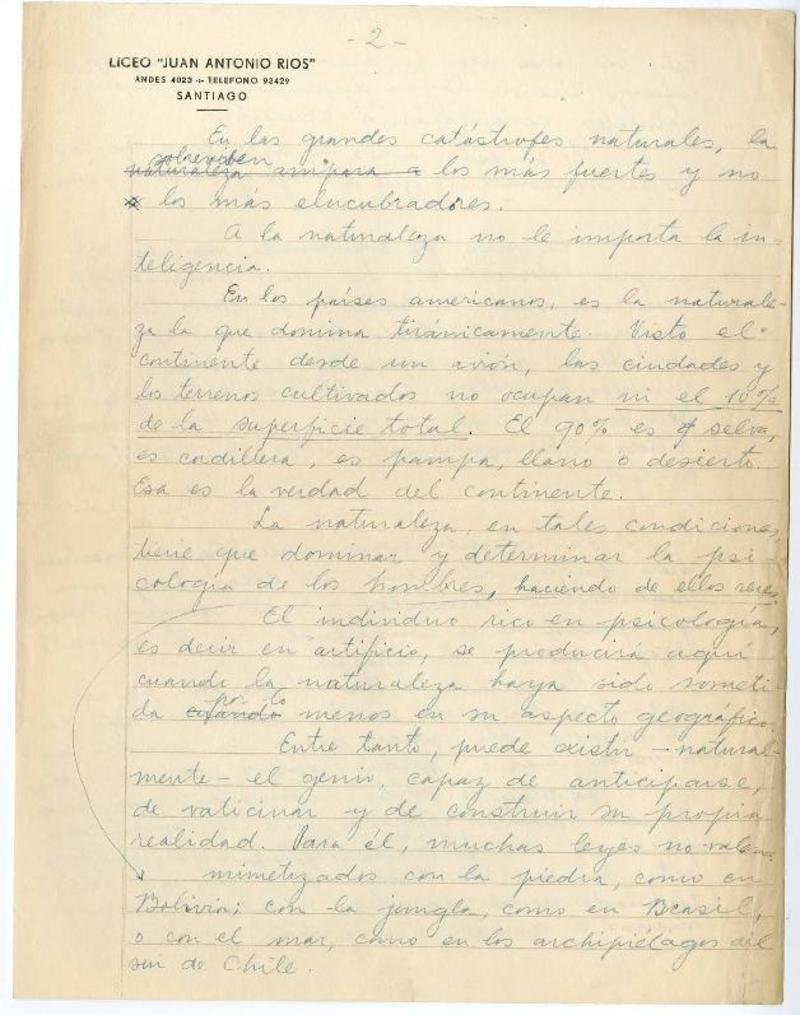 - 2 -
LICEO "JUAN ANTONIO RIOS"
ANDES 4023 -:- TELEFONO 93429
SANTIAGO
En las grandes catástrofes naturales, la
sobreviven
naturaleza ampara a los más fuertes y no
los más elucubradores.
A la naturaleza no le importa la in-
teligencia.
En los países americanos, es la naturale-
za la que domina tiránicamente. Visto el
continente desde un avión, las ciudades y
los terrenos cultivados no ocupan ni el 10%
de la superficie total. El 90% es selva,
es cordillera, es pampa, llano o desierto.
Esa es la verdad del continente.
La naturaleza, en tales condiciones,
tiene que dominar y determinar la psi-
cología de los hombres, haciendo de ellos seres
El individuo rico en psicología,
es decir en artificio, se producirá aquí
cuando la naturaleza haya sido someti-
por lo
da cuando menos en su aspecto geográfico.
Entre tanto, puede existir - natural-
mente - el genio, capaz de anticiparse,
de vaticinar y de construir su propia
realidad. Para él, muchas leyes no valen.
mimetizados con la piedra, como en
Bolivia; con la jungla, como en Brasil,
o con el mar, como en los archipiélagos del
sur de Chile.